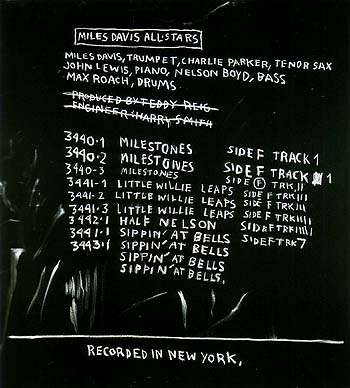 MILES DAVIS ALL·STARS
MILES DAVIS, TRUMPET, CHARLIE PARKER, TENOR SAX
JOHN LEWIS, PIANO, NELSON BOYD, BASS
MAX ROACH, DRUMS
PRODUCED BY TEDDY REIG
ENGINEER: HARRY SMITH
3440·1 MILESTONES SIDE F TRACK 1
3440·2 MILESTONES SIDE F TRACK 1
3440-3 MILESTONES SIDE F TRK.II
3441-1 LITTLE WILLIE LEAPS SIDE F TRK III
3441·2 LITTLE WILLIE LEAPS SIDE F TRK III
3441·3 LITTLE WILLIE LEAPS SIDE F TRK IIII
3442·1 HALF NELSON SIDE F TRK IIII
3441·1 SIPPIN' AT BELLS SIDE F TRK 7
3443·1 SIPPIN' AT BELLS
SIPPIN' AT BELLS
SIPPIN' AT BELLS.
RECORDED IN NEW YORK,